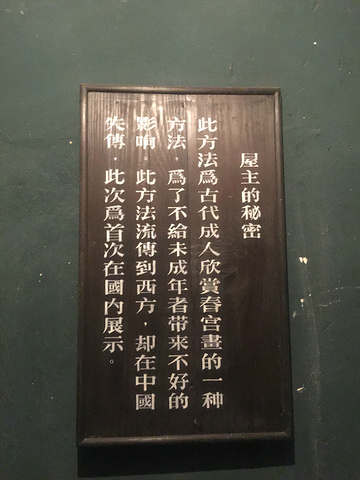 屋主的秘密
此方法爲古代成人欣賞春宫畫的一种
方法，爲了不给未成年者带来不好的
影响。此方法流傳到西方，却在中國
失傳，此次爲首次在國内展示。